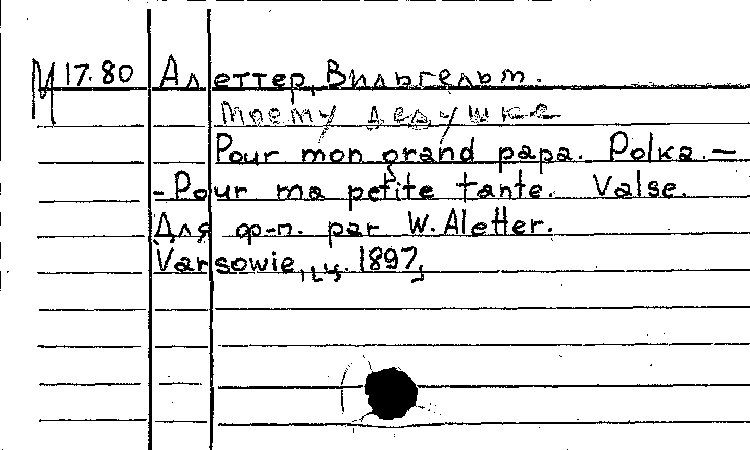 М 17.80 Алеттер, Вильгельм.
Моему дедушке
Pour mon grand papa. Polka. —
- Pour ma petite tante. Valse.
Для ф-п. par W. Aletter.
Varsowie, ц. 1897,